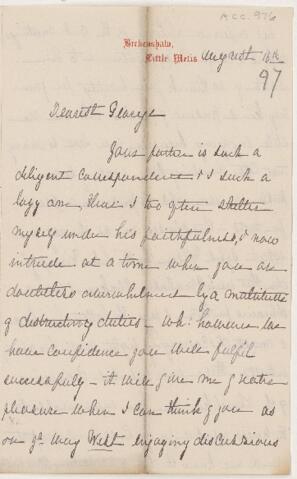 ACC. 976
Birkenshaw,
Little Melis
August 18th
97
Dearest George
Your pater is such a
diligent correspondent & I such a
lazy one, that I too often shelter
myself under his faithfulness, & now
intrude at a time when you are
doubtless overwhelmed by a multitude
of distracting duties - wh: however we
have confidence you will fulfil
successfully - it will give me greater
pleasure when I can think of you as
on yr way West engaging discussions